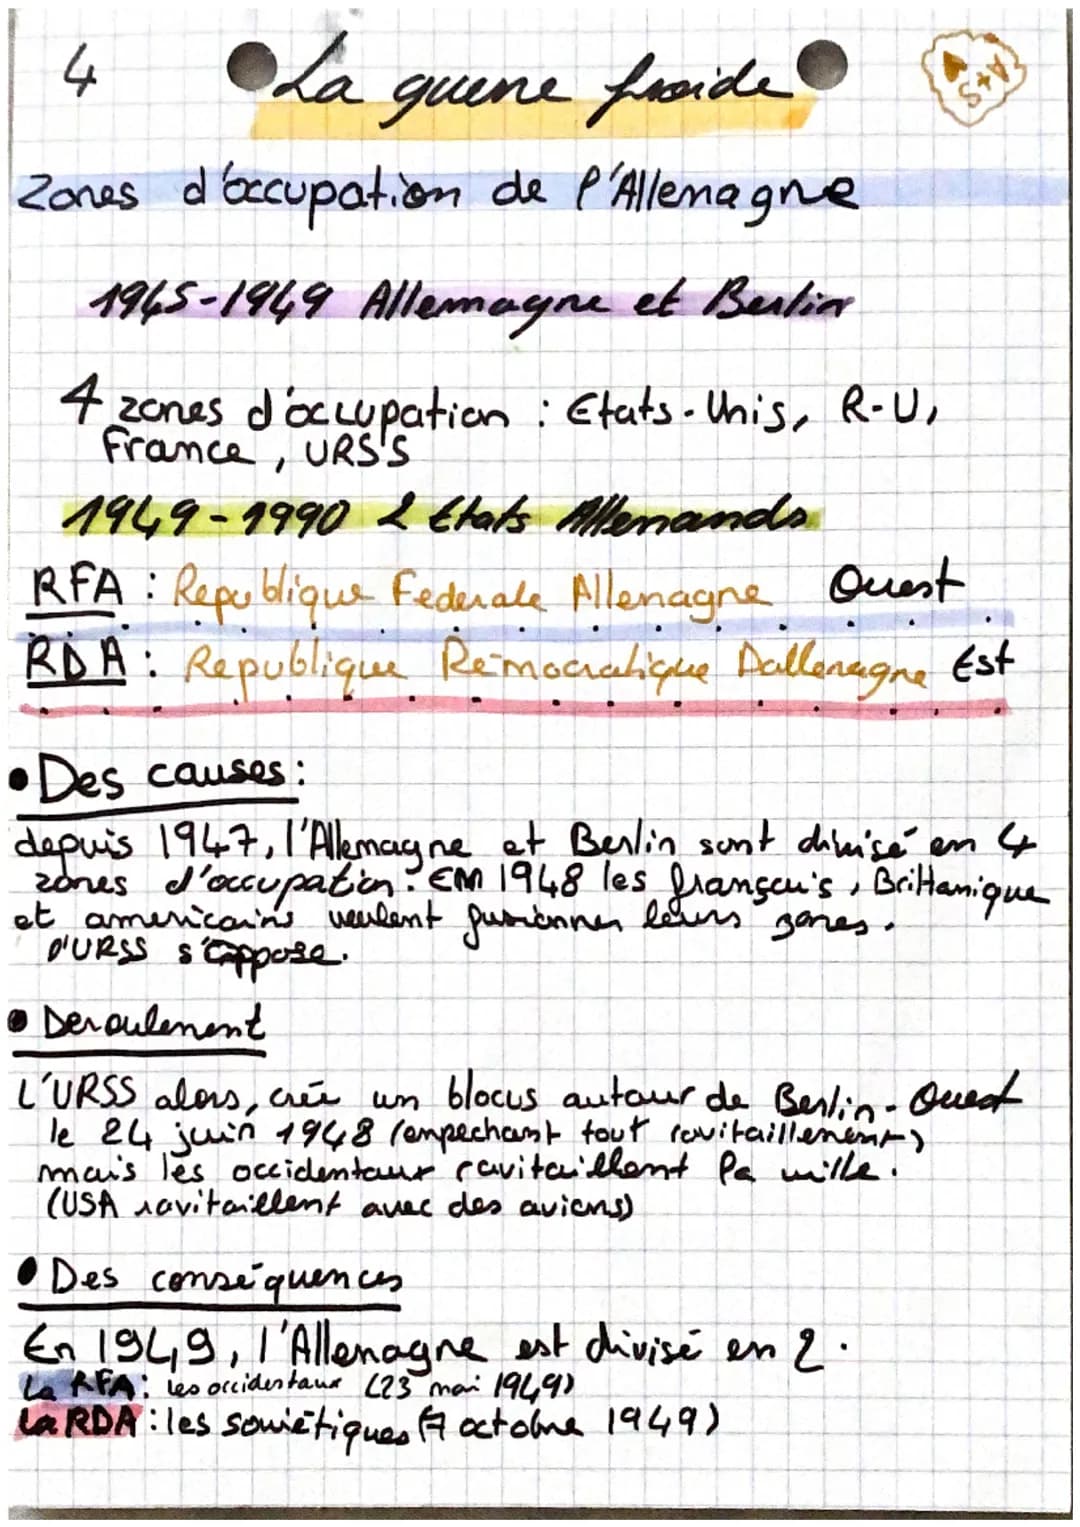 4 La guerre froide
S+V
Zones d'occupation de l'Allemagne
1945-1949 Allemagne et Berlin
4 zones d'occupation : Etats-Unis, R-U,
France, URSS
1949-1990 2 Etats Allemands
RFA : Republique Federale Allemagne Ouest
RDA : Republique Démocratique Dallemagne Est
• Des causes :
depuis 1947, l'Allemagne et Berlin sont divisé en 4
zones d'occupation. En 1948 les français, Brittanique
et americains veulent fusionner leurs zones.
l'URSS s'oppose.
• Deroulement
L'URSS alors, crée un blocus autour de Berlin-Ouest
le 24 juin 1948 (empechant tout ravitaillement)
mais les occidentaux ravitaillent la ville.
(USA ravitaillent avec des avions)
• Des conséquences
En 1949, l'Allemagne est divisé en 2.
La RFA : les occidentaux (23 mai 1949)
La RDA : les soviétiques (7 octobre 1949)